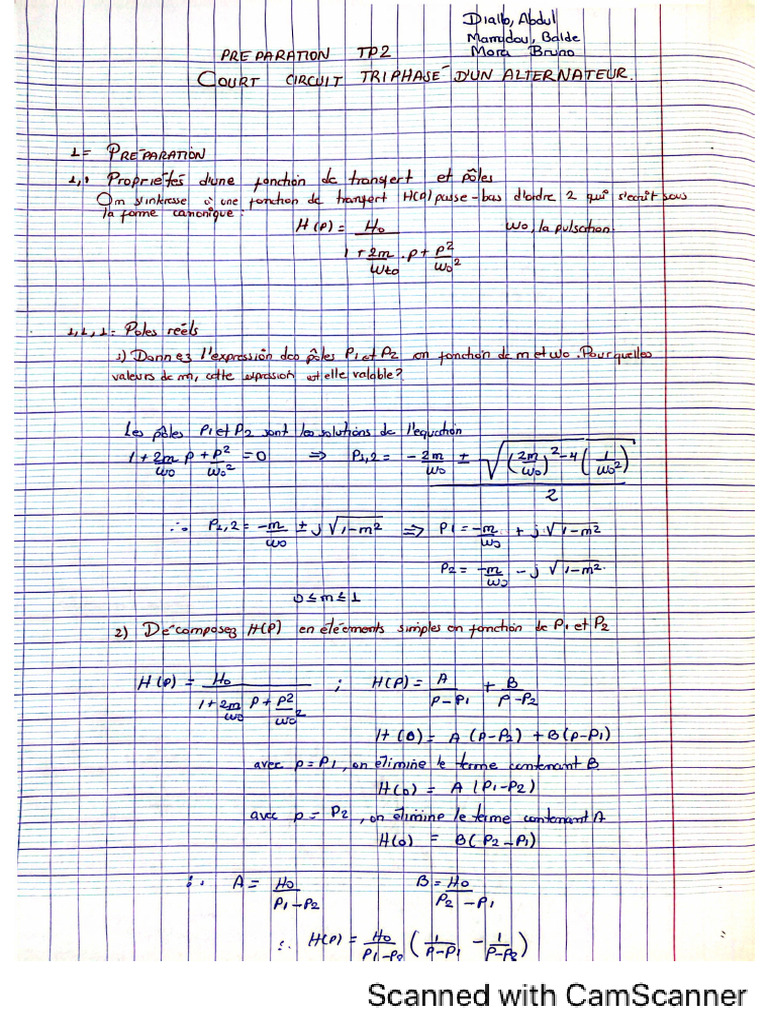 Diallo, Abdul
Mamadou, Balde
Mora Bruno
PREPARATION TP2
COURT CIRCUIT TRIPHASÉ D'UN ALTERNATEUR.
1= PRÉPARATION
1,1 Propriétés d'une fonction de transfert et pôles
On s'intéresse à une fonction de tranfert H(p) passe-bas d'ordre 2 qui s'écrit sous
la forme canonique :
H(p) = H0 / (1 + 2m/ωt0 . p + p²/ω0²) ω0, la pulsation
1,1,1= Poles réels
1) Donnez l'expression des pôles P1 et P2 en fonction de m et ω0. Pour quelles
valeurs de m, cette expression est elle valable?
Les pôles P1 et P2 sont les solutions de l'equation
1 + 2m/ω0 p + p²/ω0² = 0 ⇒ P1,2 = (-2m/ω0 ± √((2m/ω0)² - 4(1/ω0²))) / 2
∴ P1,2 = -m/ω0 ± j√1-m² ⇒ P1 = -m/ω0 + j.√1-m²
P2 = -m/ω0 - j √1-m²
0 ≤ m ≤ 1
2) Décomposez H(p) en éléements simples en fonction de P1 et P2
H(p) = H0 / (1 + 2m/ω0 p + p²/ω0²) ; H(p) = A/(p-P1) + B/(p-P2)
H(0) = A(p-P2) + B(p-P1)
avec p = P1, on élimine le terme contenant B.
H(0) = A(P1-P2)
avec p = P2, on élimine le terme contenant A
H(0) = B(P2-P1)
∴ A = H0/(P1-P2) B = H0/(P2-P1)
∴ H(p) = H0/(P1-P2) (1/(p-P1) - 1/(p-P2))
Scanned with CamScanner